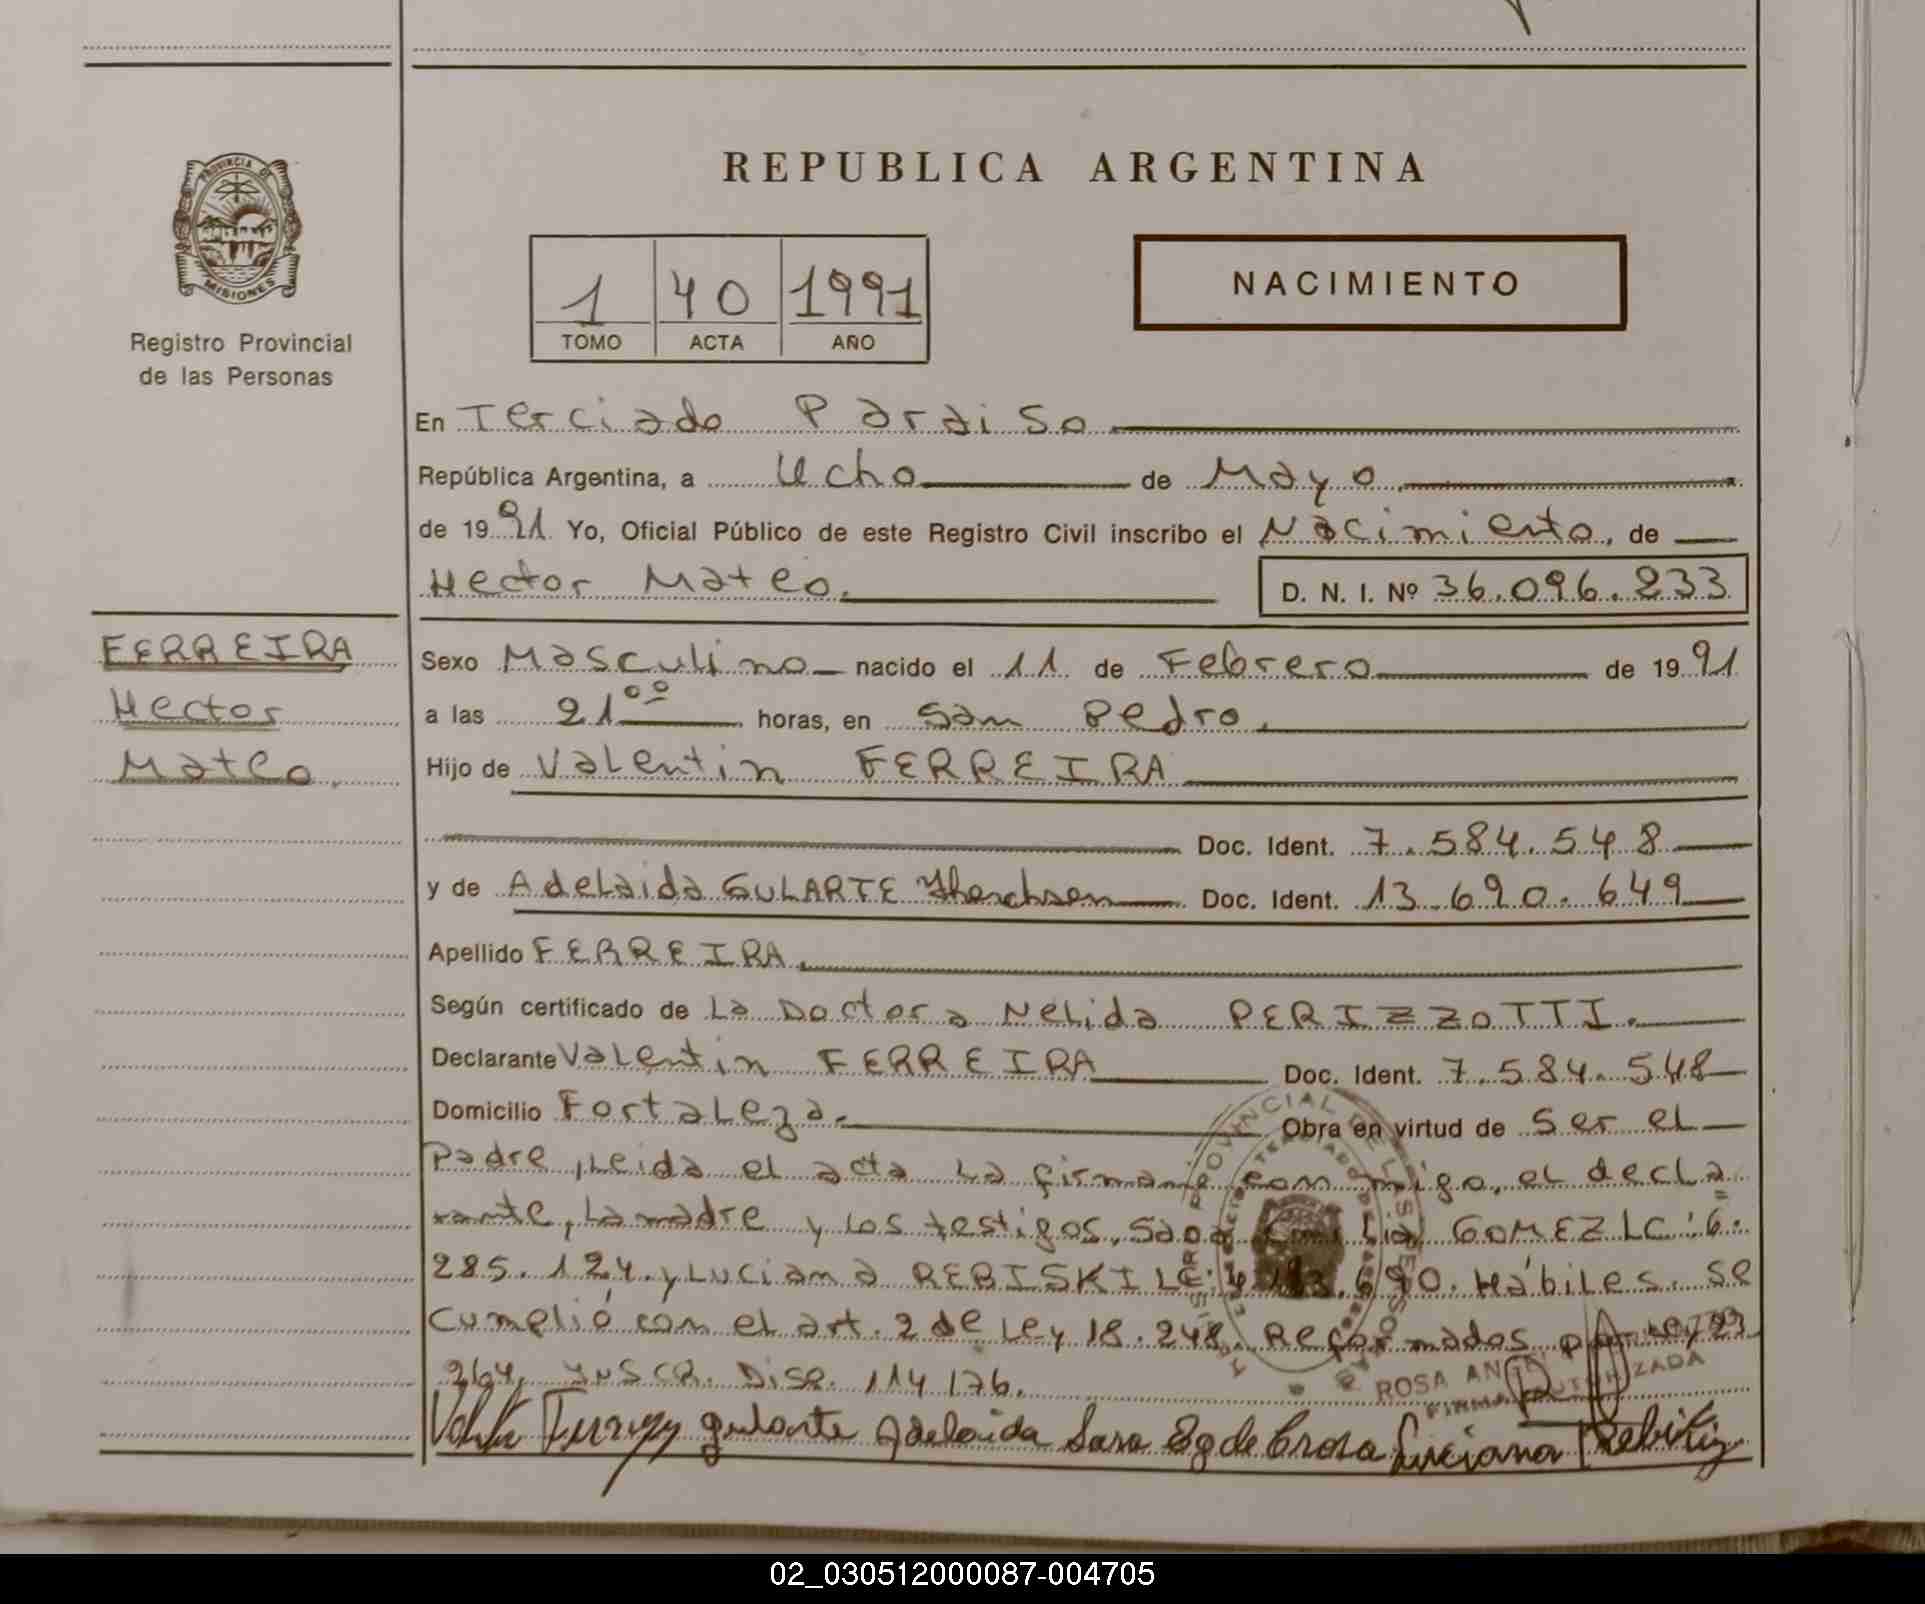 REPUBLICA ARGENTINA
PROVINCIA DE
MISIONES
Registro Provincial
de las Personas
NACIMIENTO
1 40 1991
TOMO ACTA AÑO
En Terciado Paraiso
República Argentina, a Ocho de Mayo
de 1991 Yo, Oficial Público de este Registro Civil inscribo el Nacimiento, de
Hector Mateo. D. N. I. Nº 36.096.233
FERREIRA
Hector
Mateo.
Sexo Masculino nacido el 11 de Febrero de 1991
a las 21 ºº horas, en San Pedro.
Hijo de Valentin FERREIRA
Doc. Ident. 7.584.548
y de Adelaida GULARTE Doc. Ident. 13.690.649
Apellido FERREIRA.
Según certificado de La Doctora Nelida PERIZZOTTI.
Declarante Valentin FERREIRA Doc. Ident. 7.584.548
Domicilio Fortaleza. Obra en virtud de Ser el
Padre, Leida el acta La firman con migo, el decla
rante, la madre y los testigos, Sara GOMEZ LC: 6.
285.124. y Luciana REBISKI LC: Hábiles. Se
Cumplió con el art. 2 de Ley 18.248. Reformados por Ley 23
264, INSCR. Disp. 114/76.
ROSA
FIRMA AUTORIZADA
gularte Adelaida Sara Luciana
02_030512000087-004705